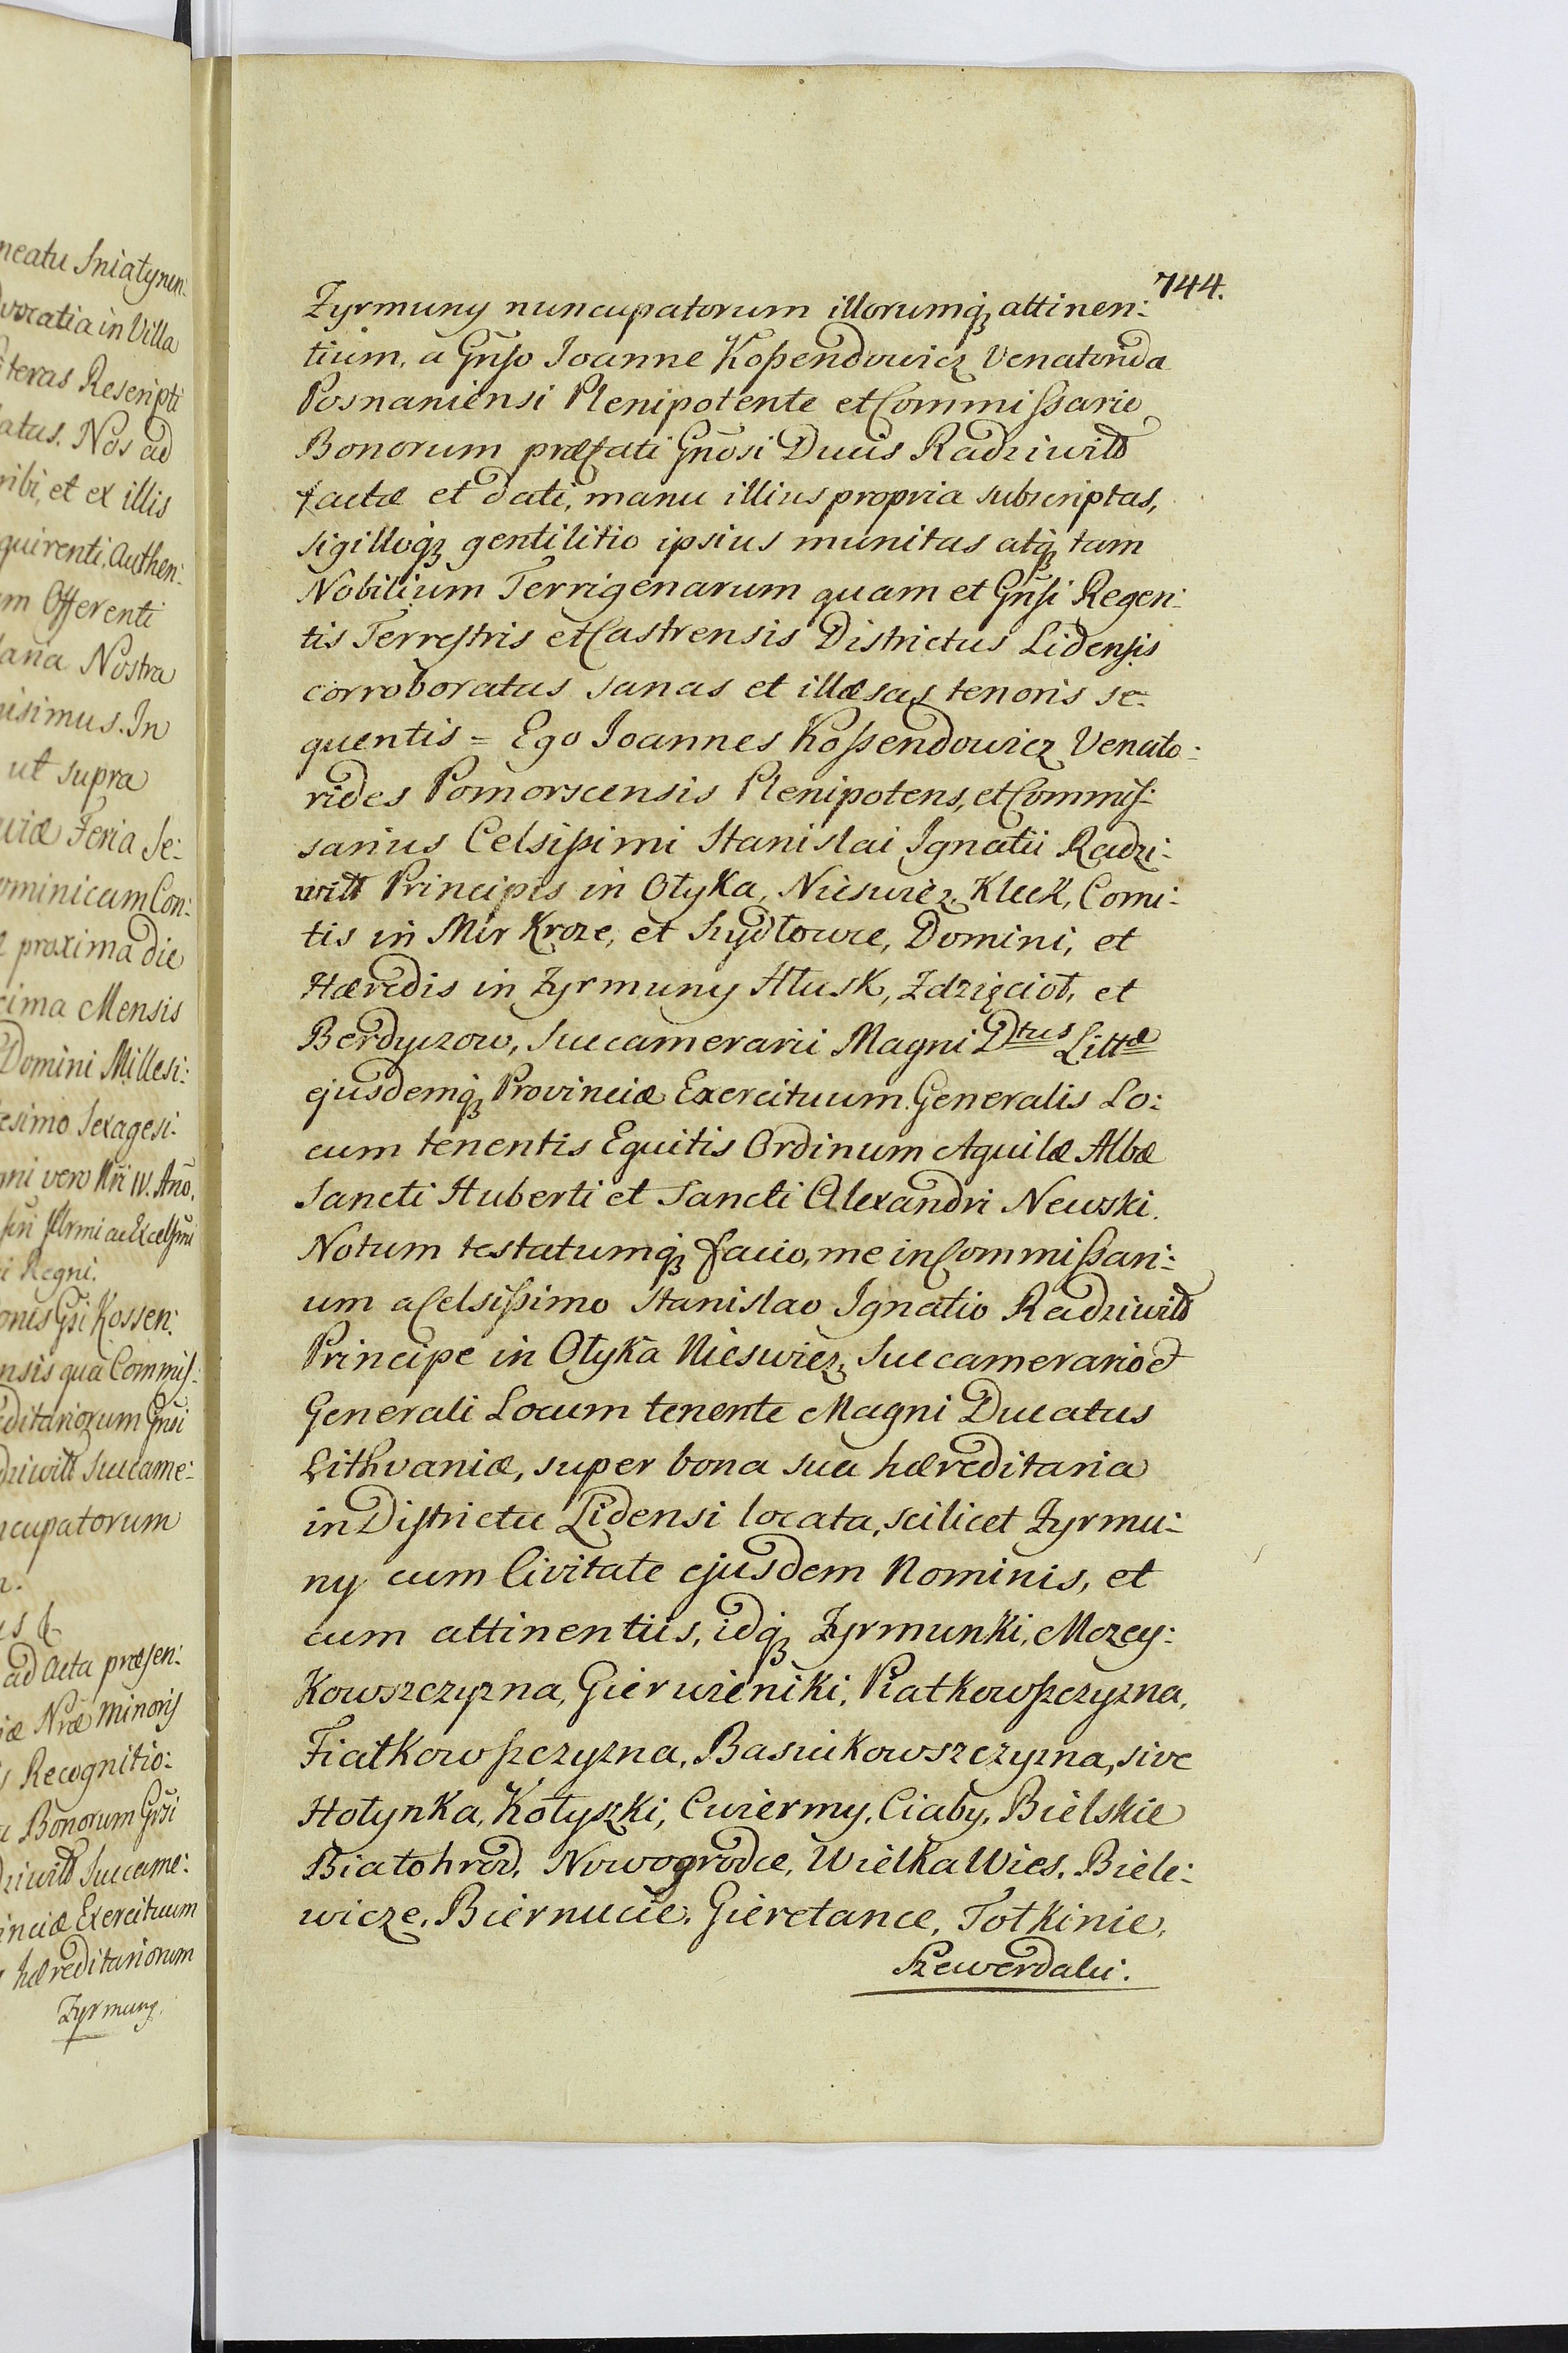 neatu Sniatynen:
vocatia in Villa
teras Rescripti
atus. Nos ad
ribi, et ex illis
quirenti, Authen:
m Offerenti
ana Nostra
isimus. In
ut supra
uiæ Feria Se:
ominicam Con:
proxima die
cima Mensis
Domini Millesi:
esimo Sexagesi:
gni vero Nri IV. Ano.
i Regni.
onis Gsi Kossen:
nsis qua Commis:
editariorum Gnsi
dziwiłł Succame:
ncupatorum
ad Acta præsen:
iæ Nræ Minoris
s Recognitio:
Bonorum Gnsi
ziwiłł Succame:
inciæ Exercituum
hæreditariorum
Zyrmuny.
744.
Zyrmuny nuncupatorum illorumq; attinen:
tium, a Gnso Joanne Koßendowicz Venatorida
Posnaniensi Plenipotente et Commißario
Bonorum præfati Gnosi Ducis Radziwiłł
factæ et dati, manu illius propria subscriptas,
sigilloq; gentilitio ipsius munitas atq; tam
Nobilium Terrigenarum quam et Gnsi Regen:
tis Terrestris et Castrensis Districtus Lidensis
corroboratas sanas et illæsas tenoris se:
quentis = Ego Joannes Koßendowicz Venato:
rides Pomorscensis Plenipotens, et Commis:
sarius Celsißimi Stanislai Ignatii Radzi:
wiłł Principis in Ołyka, Nieswiez, Kleck, Comi:
tis in Mir Kroze, et Szydłowce, Domini, et
Hæredis in Zyrmuny Hłusk, Zdzięcioł, et
Berdyczow, Succamerarii Magni Dtus Littæ
ejusdemq; Provinciæ Exercituum Generalis Lo:
cum tenentis Equitis Ordinum Aquilæ Albæ
Sancti Huberti et Sancti Alexandri Newski.
Notum testatumq; facio, me in Commißari:
um a Celsißimo Stanislao Ignatio Radziwiłł
Principe in Ołyka Nieswiez, Succamerario et
Generali Locum tenente Magni Ducatus
Lithvaniæ, super bona sua hæreditaria
in Districtu Lidensi locata, scilicet Zyrmu:
ny cum Civitate ejusdem Nominis, et
cum attinentiis, idq; Zyrmunki, Mozey:
Kowszczyzna, Gierwieniki, Piatkowßczyzna,
Fiatkowßczyzna, Basiukowszczyzna, sive
Hołynka, Kołyszki, Cwiermy, Ciaby, Bielskie
Białohrod, Nowogrodce, Wielka Wies, Biele:
wicze, Biernucie, Gieretance, Totkinie,
Szewerdaki.